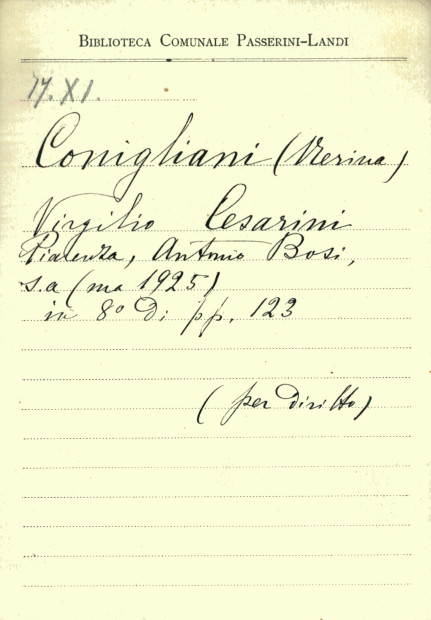 BIBLIOTECA COMUNALE PASSERINI-LANDI
17.XI.
Conigliani (Nerina)
Virgilio Cesarini
Piacenza, Antonio Bosi,
s.a (ma 1925)
in 8° di pp. 123
(per diritto)